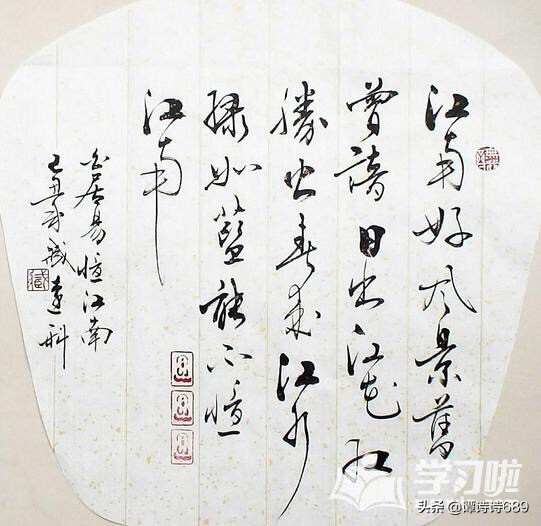 江南好风景舊
曾諳日出江花红
勝火春来江水
绿如藍能不憶
江南
白居易憶江南
己丑年臧科
学习啦
头条 @谭诗诗689